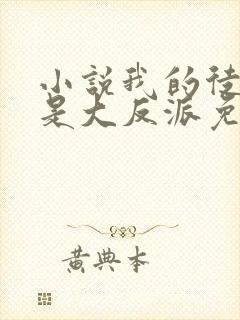 小說我的徒
是大反派免
黃典本